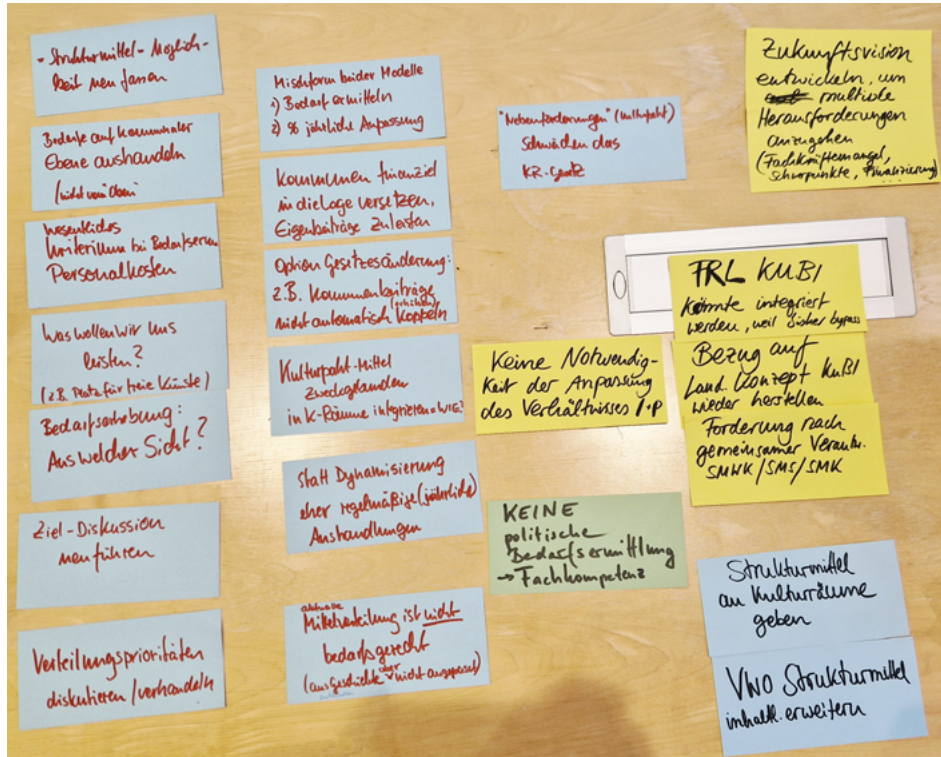 - Strukturmittel - Möglich-
keit neu fassen
Bedarfe auf kommunaler
Ebene aushandeln
(nicht von oben)
Wesentliches
Kriterium bei
Personalkosten
Was wollen wir uns
leisten?
(z.B. Platz für freie Künste)
Bedarfserhebung:
Aus welcher Sicht?
Ziel-Diskussion
neu führen
Verteilungsprioritäten
diskutieren/verhandeln
Mischform beider Modelle
1) Bedarf ermitteln
2) % jährliche Anpassung
Kommunen finanziel
in die Lage versetzen,
Eigenbeiträge zu leisten
Option Gesetzesänderung:
z.B. Kommunenbeiträge
(erhöhen)
nicht automatisch koppeln
Kulturpakt-Mittel
zweckgebunden
in K-Räume integrieren = WIE?
Statt Dynamisierung
eher regelmäßige (jährliche)
Aushandlungen
aktuelle
Mittelverteilung ist nicht
bedarfsgerecht
(aus Geschichte aber nicht angepasst)
"Nebenförderungen" (Kulturpakt)
schwächen das
KR-Gesetz
Keine Notwendig-
keit der Anpassung
des Verhältnisses I.P
KEINE
politische
Bedarfsermittlung
→ Fachkompetenz
Zukunftsvision
entwickeln, um
multiple
Herausforderungen
anzugehen
(Fachkräftemangel,
Schwerpunkte, Finanzierung)
...
FRL KUBI
könnte integriert
werden, weil bisher bypass
Bezug auf
Land. Konzept KuBi
wieder herstellen
Forderung nach
gemeinsamer Verantw.
SMWK/SMS/SMK
Strukturmittel
an Kulturräume
geben
VWO Strukturmittel
inhaltl. erweitern